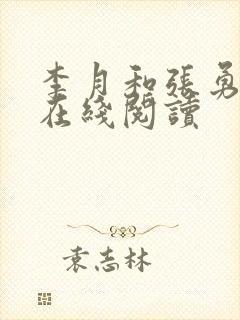 李月和張勇
在綫閱讀
袁志林